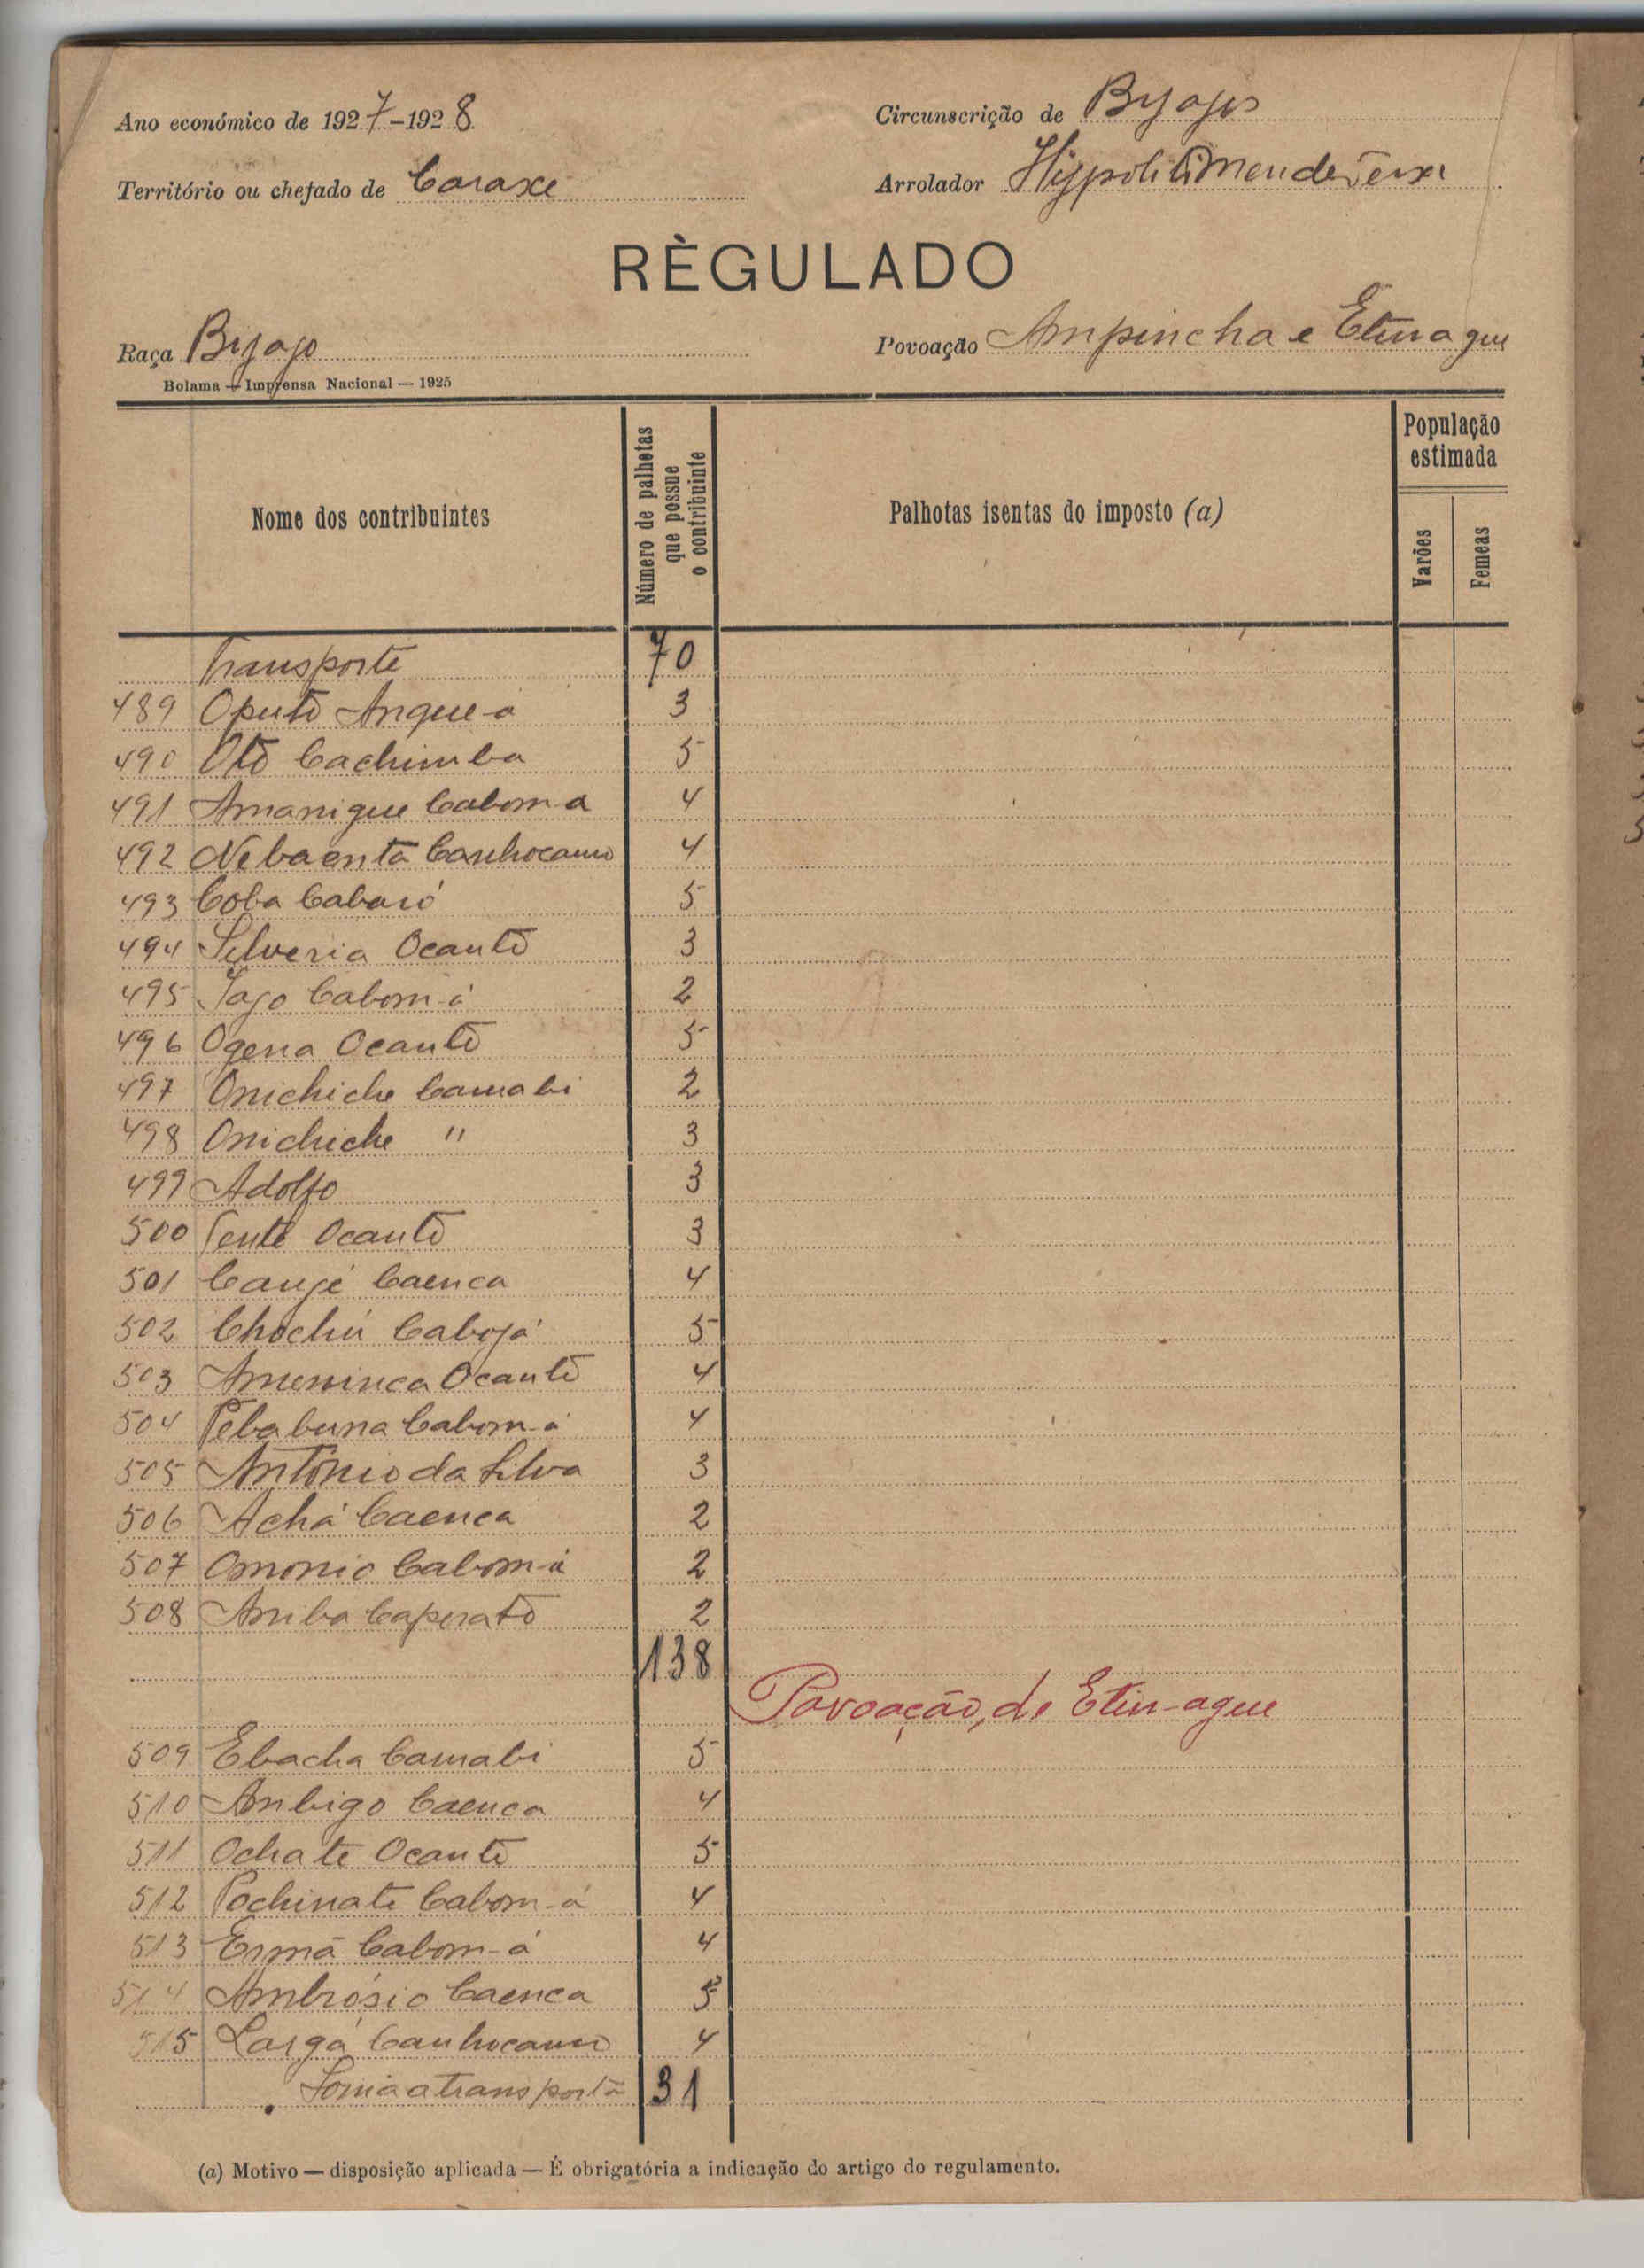 Ano económico de 1927-1928
Circunscrição de Byagos
Território ou chefado de Caraxe
Arrolador Hippolito Mendes
RÈGULADO
Raça Byago
Povoação Ampincha e Etinague
Bolama — Imprensa Nacional — 1925
Nome dos contribuintes
Número de palhotas que possue o contribuinte
Palhotas isentas do imposto (a)
População estimada
Varões
Femeas
Transporte 70
489 Oputo Anque-á 3
490 Otô Cachimba 5
491 Amanique Cabom-a 4
492 Nebaenta Canhocamo 4
493 Coba Cabaió 5
494 Silveria Ocantô 3
495 Jago Cabom-á 2
496 Ogena Ocantô 5
497 Onichiche Camabi 2
498 Onichiche " 3
499 Adolfo 3
500 Tente Ocantô 3
501 Canjé Caenca 4
502 Chochú Cabojá 5
503 Ameninca Ocantô 4
504 Pebabuna Cabom-á 4
505 António da Silva 3
506 Achá Caenca 2
507 Omonio Cabom-á 2
508 Aniba Caperatô 2
138
Povoação, de Etin-ague
509 Ebacha Camabi 5
510 Ambigo Caenca 4
511 Ochate Ocantô 5
512 Pochinate Cabom-á 4
513 Ermã Cabom-á 4
514 Ambrósio Caenca 5
515 Largá Canhocamo 4
Soma a transportar 31
(a) Motivo — disposição aplicada — É obrigatória a indicação do artigo do regulamento.